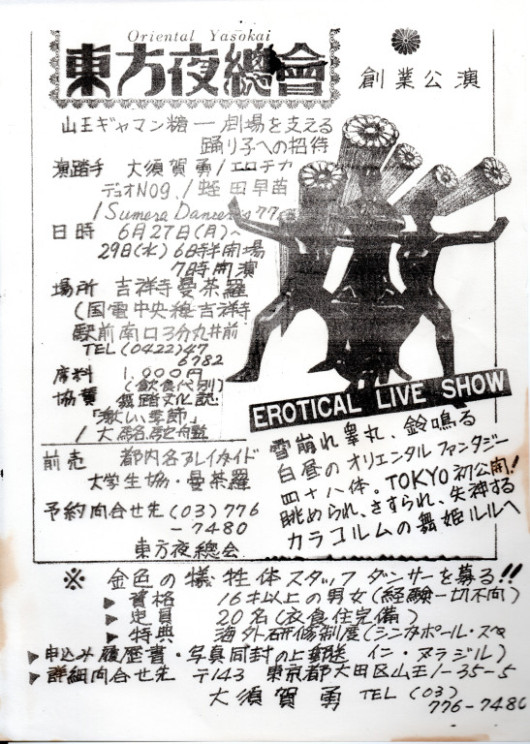 Oriental Yasokai
東方夜總會
創業公演
山王ギャマン糖一劇場を支える
踊り子への招待
演踏手 大須賀勇/エロチカ
デュオNo9/蛭田早苗
/Sumera Dancers 77
日時 6月27日(月)～
29日(水) 6時半開場
7時開演
場所 吉祥寺曼荼羅
(国電中央線吉祥寺
駅前南口3分丸井前
TEL(0422)47
6782
席料 1,000円
(飲食代別)
協賛 舞踏文化誌
「激しい季節」
/大駱駝艦
EROTICAL LIVE SHOW
雪崩れ睾丸、鈴鳴る
白昼のオリエンタルファンタジー
四十八体。TOKYO初公開!
眺められ、さすられ、失神する
カラコルムの舞姫ルルへ
前売 都内各プレイガイド
大学生協・曼荼羅
予約問合せ先 (03)776
-7480
東方夜總会
※ 金色の犠牲体スタッフダンサーを募る!!
▶資格 16才以上の男女(経験一切不問)
▶定員 20名(衣食住完備)
▶特典 海外研修制度(シンガポール・スペ
イン・ブラジル)
▶申込み 履歴書・写真同封の上郵送
▶詳細問合せ先 〒143 東京都大田区山王1-35-5
大須賀勇 TEL (03)
776-7480